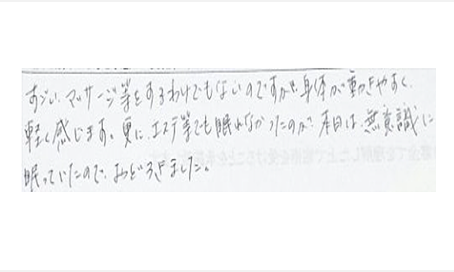 すごい、マッサージ等をするわけでもないのですが、身体が動きやすく、
軽く感じます。更に、エステ等でも眠れなかったのが、本日は、無意識に
眠っていたので、おどろきました。